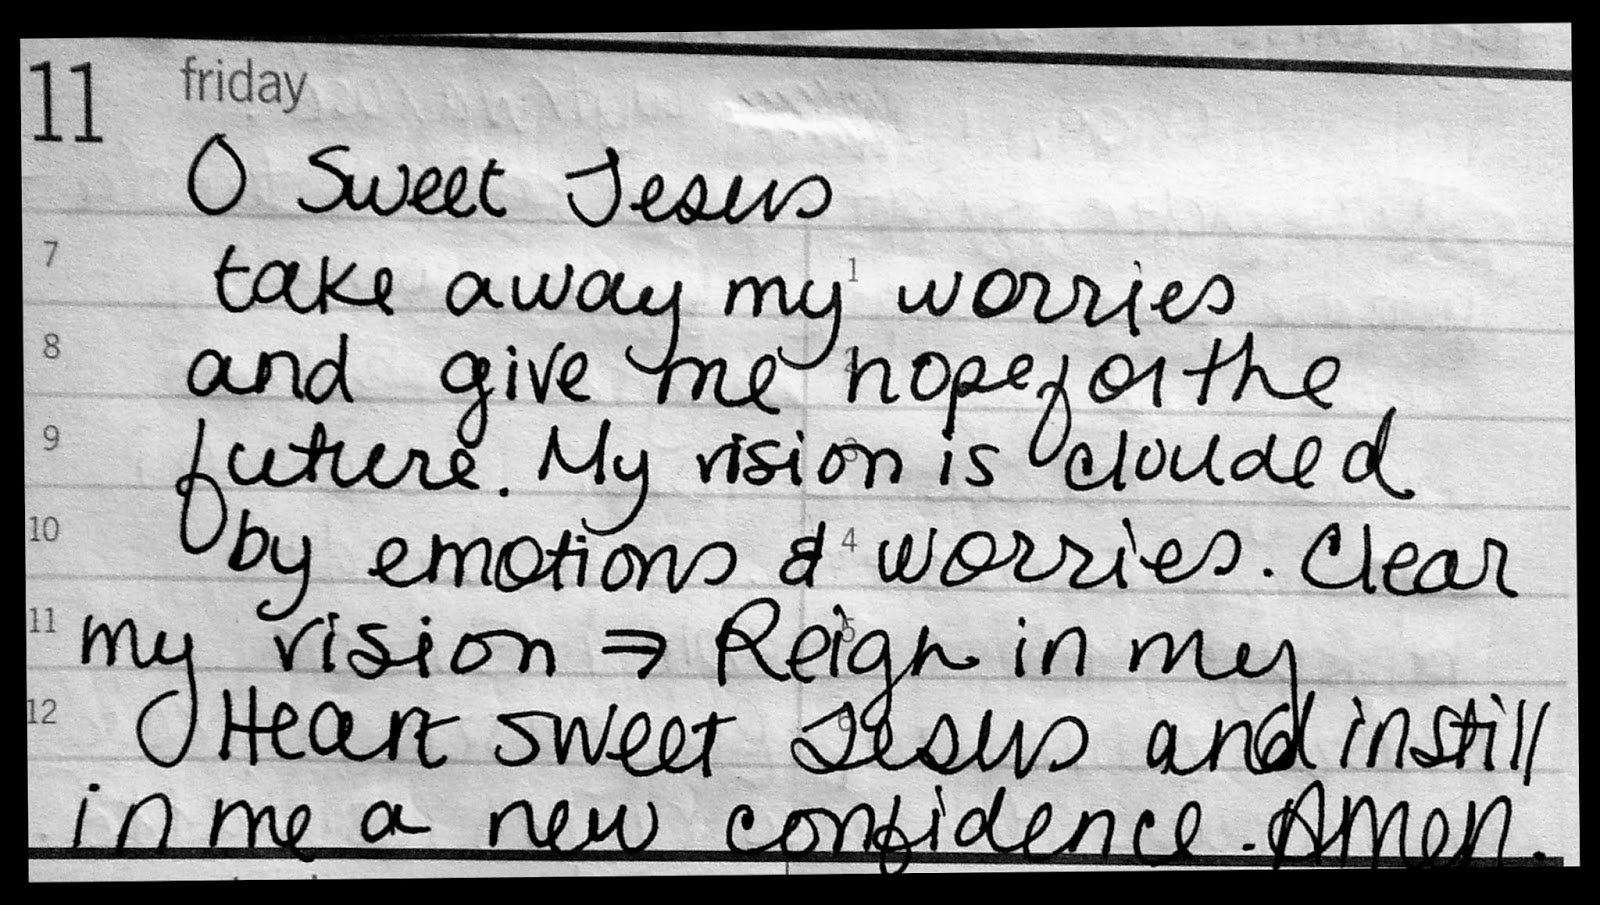 11 friday
O Sweet Jesus
7 take away my 1 worries
8 and give me hope for the
9 future. My vision is clouded
10 by emotions & 4 worries. Clear
11 my vision ⇒ Reign in my
12 Heart sweet Jesus and instill
in me a new confidence. Amen.